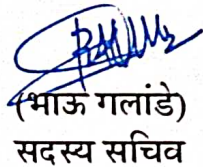 (भाऊ गलांडे)
सदस्य सचिव